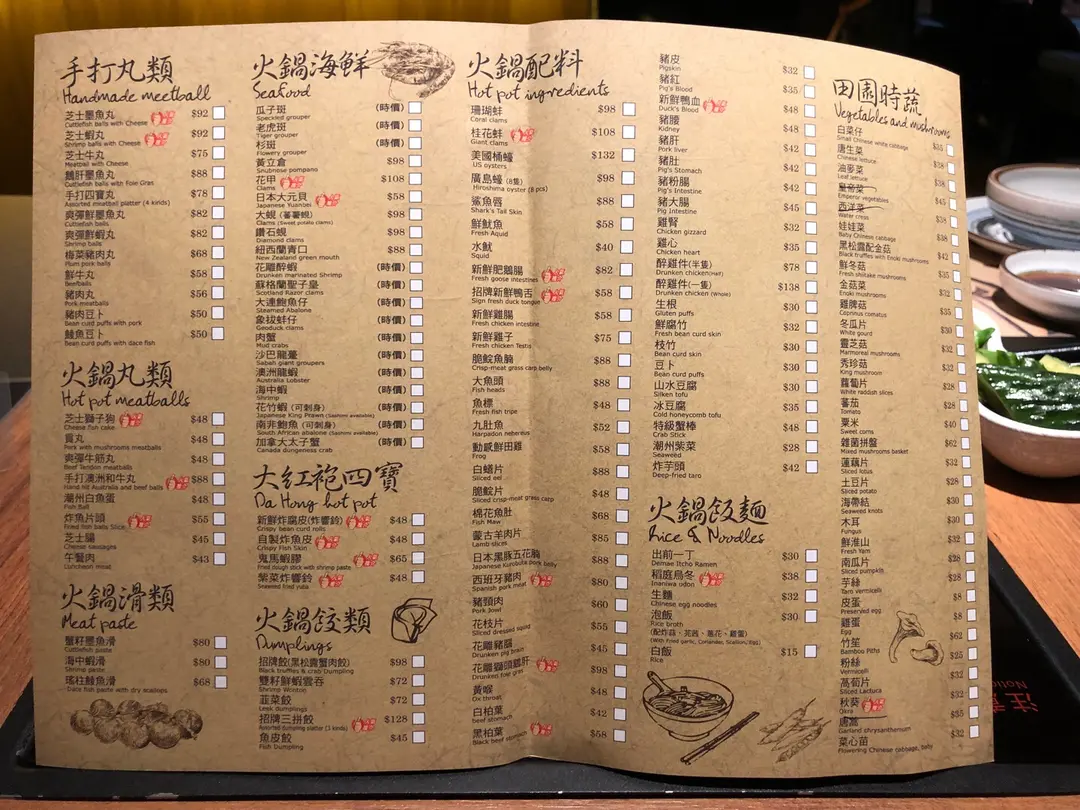 手打丸類
Handmade meetball
芝士墨魚丸 $92
Cuttlefish balls with Cheese
芝士蝦丸 $92
Shrimp balls with Cheese
芝士牛丸 $75
Meatball with Cheese
鵝肝墨魚丸 $88
Cuttlefish balls with Foie Gras
手打四寶丸 $78
Assorted meatball platter (4 kinds)
爽彈鮮墨魚丸 $82
Cuttlefish balls
爽彈鮮蝦丸 $82
Shrimp balls
梅菜豬肉丸 $68
Plum pork balls
鮮牛丸 $58
Beefballs
豬肉丸 $56
Pork meatballs
豬肉豆卜 $50
Bean curd puffs with pork
鯪魚豆卜 $50
Bean curd puffs with dace fish
火鍋丸類
Hot pot meatballs
芝士獅子狗 $48
Cheese fish cake
貢丸 $48
Pork with mushrooms meatballs
爽彈牛筋丸 $48
Beef Tendon meatballs
手打澳洲和牛丸 $88
Hand hit Australia and beef balls
潮州白魚蛋 $48
Fish Ball
炸魚片頭 $55
Fried fish balls Slice
芝士腸 $45
Cheese sausages
午餐肉 $43
Luncheon meat
火鍋滑類
Meat paste
蟹籽墨魚滑 $80
海中蝦滑 $80
Shrimp paste
瑤柱鯪魚滑 $68
Dace fish paste with dry scallops
火鍋海鮮
Seafood
瓜子斑 (時價)
Speckled grouper
老虎斑 (時價)
Tiger grouper
杉斑 (時價)
Flowery grouper
黃立倉 $98
Snubnose pompano
花甲 $108
Clams
日本大元貝 $58
Japanese Yuanbei
大蜆 (蕃薯蜆) $98
Clams (Sweet potato clams)
鑽石蜆 $98
Diamond clams
紐西蘭青口 $88
New Zealand green mouth
花雕醉蝦 (時價)
Drunken marinated Shrimp
蘇格蘭聖子皇 (時價)
Scotland Razor clams
大連鮑魚仔 (時價)
Steamed Abalone
象拔蚌仔 (時價)
Geoduck clams
肉蟹 (時價)
Mud crabs
沙巴龍躉 (時價)
Sabah giant groupers
澳洲龍蝦 (時價)
Australia Lobster
海中蝦 (時價)
Shrimp
花竹蝦 (可刺身) (時價)
Japanese King Prawn (Sashimi available)
南非鮑魚 (可刺身) (時價)
South African abalone (Sashimi available)
加拿大太子蟹 (時價)
Canada dungeness crab
大紅袍四寶
Da Hong hot pot
新鮮炸腐皮(炸響鈴) $48
Crispy bean curd rolls
自製炸魚皮 $48
Crispy Fish Skin
鬼馬蝦膠 $65
Fried dough stick with shrimp paste
紫菜炸響鈴 $48
Seaweed fried yuba
火鍋餃類
Dumplings
招牌餃(黑松露蟹肉餃) $98
Black truffles & crab Dumpling
雙籽鮮蝦雲吞 $72
Shrimp Wonton
韮菜餃 $72
Leek dumplings
招牌三拼餃 $128
Assorted dumpling platter (3 kinds)
魚皮餃 $45
Fish Dumpling
火鍋配料
Hot pot ingredients
珊瑚蚌 $98
Coral clams
桂花蚌 $108
Giant clams
美國桶蠔 $132
US oysters
廣島蠔 (8隻) $98
Hiroshima oyster (8 pcs)
鯊魚唇 $88
Shark's Tail Skin
鮮魷魚 $58
Fresh Aquid
水魷 $40
Squid
新鮮肥鵝腸 $82
Fresh goose intestines
招牌新鮮鴨舌 $58
Sign fresh duck tongue
新鮮雞腸 $58
Fresh chicken intestine
新鮮雞子 $75
Fresh chicken Testis
脆鯇魚腩 $88
Crisp-meat grass carp belly
大魚頭 $88
Fish heads
魚標 $48
Fresh fish tripe
九肚魚 $52
Harpadon nehereus
動感鮮田雞 $88
Frog
白鱔片 $88
Sliced eel
脆鯇片 $48
Sliced crisp-meat grass carp
棉花魚肚 $68
Fish Maw
蒙古羊肉片 $85
Lamb slices
日本黑豚五花腩 $88
Japanese Kurobuta pork belly
西班牙豬肉 $80
Spanish pork meat
豬頸肉 $60
Pork Jowl
花枝片 $55
Sliced dressed squid
花雕豬腦 $45
Drunken pig brain
花雕獅頭鵝肝 $98
Drunken foie gras
黃喉 $48
Ox throat
白柏葉 $42
Beef stomach
黑柏葉 $58
Black beef stomach
豬皮 $32
Pigskin
豬紅 $35
Pig's Blood
新鮮鴨血 $48
Duck's Blood
豬腰 $48
Kidney
豬肝 $42
Pork liver
豬肚 $42
Pig's Stomach
豬粉腸 $42
Pig's Intestine
豬大腸 $45
Pig Intestine
雞腎 $32
Chicken gizzard
雞心 $35
Chicken heart
醉雞件(半隻) $78
Drunken chicken(Half)
醉雞件(一隻) $138
Drunken chicken (Whole)
生根 $30
Gluten puffs
鮮腐竹 $32
Fresh bean curd skin
枝竹 $30
Bean curd skin
豆卜 $30
Bean curd puffs
山水豆腐 $30
Silken tofu
冰豆腐 $35
Cold honeycomb tofu
特級蟹棒 $48
Crab Stick
潮州紫菜 $28
Seaweed
炸芋頭 $42
Deep-fried taro
火鍋飯麵
Rice & Noodles
出前一丁 $30
Demae Itcho Ramen
稻庭烏冬 $38
Inaniwa odon
生麵 $32
Chinese egg noodles
泡飯 $30
Rice broth
(配炸蒜、芫茜、蔥花、雞蛋)
(With Fried garlic, Coriander, Scallion, Egg)
白飯 $15
Rice
田園時蔬
Vegetables and mushrooms
白菜仔 $35
Small Chinese white cabbage
唐生菜 $38
Chinese lettuce
油麥菜 $38
Leaf lettuce
皇帝菜
Emperor vegetables
西洋菜
Water cress
娃娃菜 $38
Baby Chinese cabbage
黑松露配金菇 $42
Black truffles with Enoki mushrooms
鮮冬菇 $35
Fresh shiitake mushrooms
金菇菜 $32
Enoki mushrooms
雞脾菇 $35
Coprinus comatus
冬瓜片 $30
White gourd
靈芝菇 $32
Marmoreal mushrooms
秀珍菇 $32
King mushroom
蘿蔔片 $28
White raddish slices
蕃茄 $28
Tomato
粟米 $28
Sweet corns
雜菌拼盤 $62
Mixed mushrooms basket
蓮藕片 $32
Sliced lotus
土豆片 $28
Sliced potato
海帶結 $30
Seaweed knots
木耳 $30
Fungus
鮮淮山 $32
Fresh Yam
南瓜片 $28
Sliced pumpkin
芋絲 $28
Yam vermicelli
皮蛋 $8
Preserved egg
雞蛋 $8
Egg
竹笙 $62
Bamboo Piths
粉絲 $25
Vermicelli
萵筍片 $32
Sliced Lactuca
秋葵 $32
Okra
唐蒿 $35
Garland chrysanthemum
菜心苗 $32
Flowering Chinese cabbage, baby